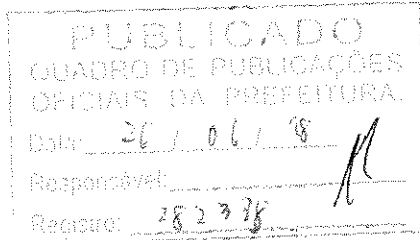 PUBLICADO
QUADRO DE PUBLICAÇÕES
OFICIAIS DA PREFEITURA.
Data: 26 / 06 / 18
Responsável:
Registro: